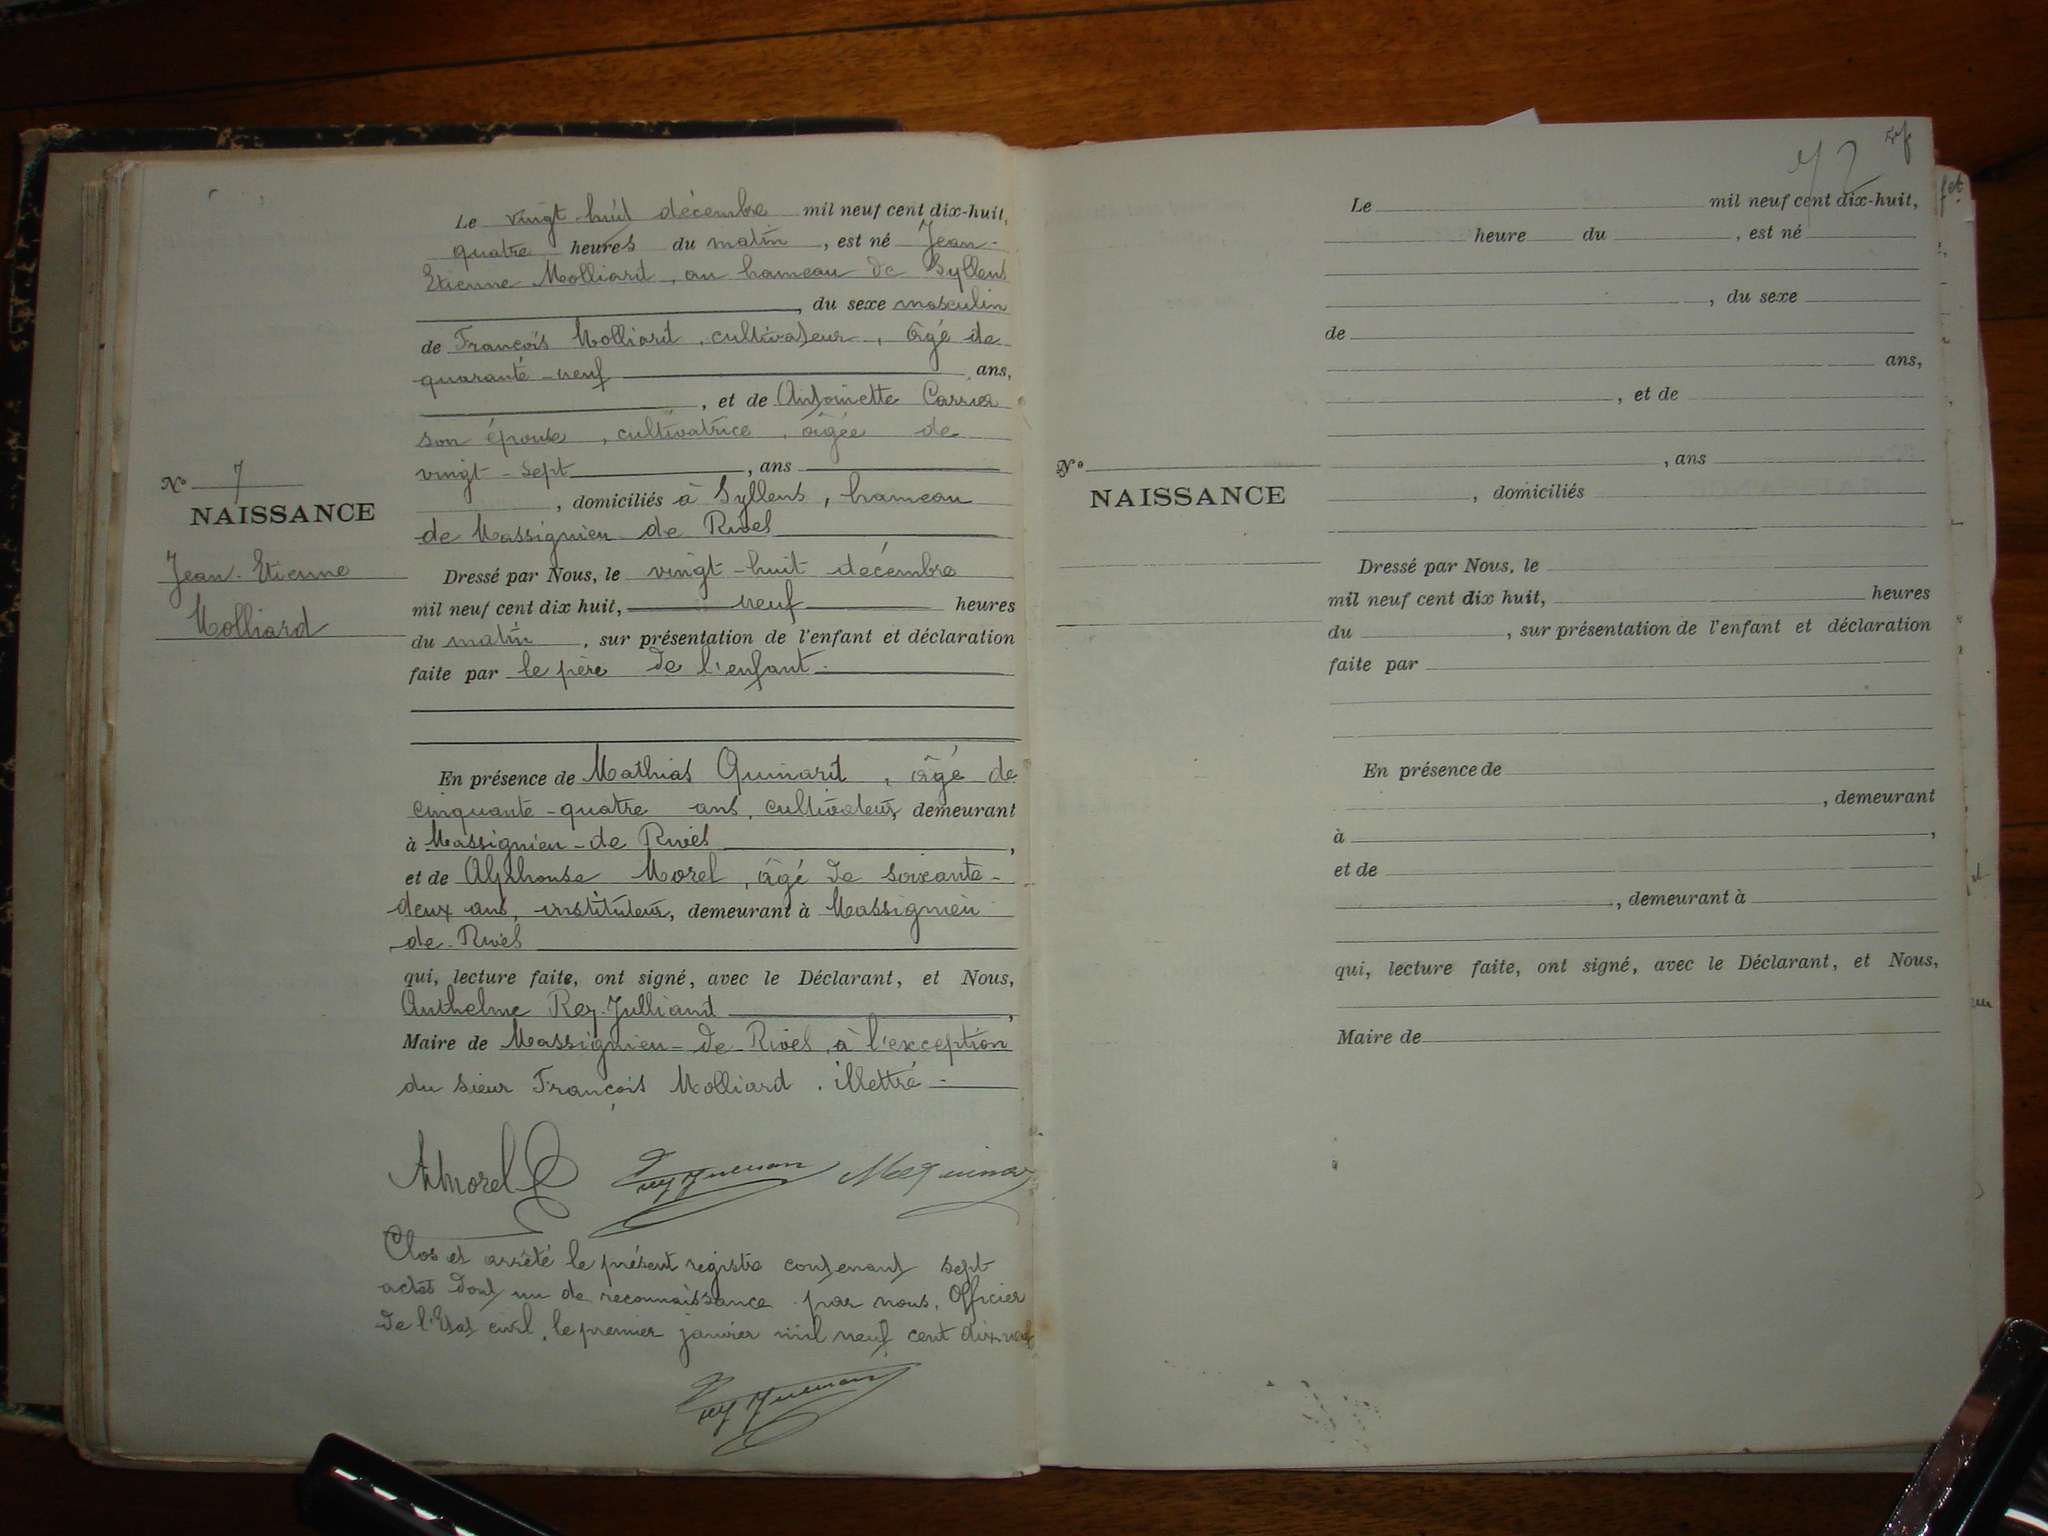 Le vingt-huit décembre mil neuf cent dix-huit,
quatre heures du matin, est né Jean-
Etienne Molliard, au hameau de Syllens
, du sexe masculin
de François Molliard, cultivateur, âgé de
quarante-neuf ans,
, et de Antoinette Carrier
son épouse, cultivatrice, âgée de
vingt-sept, ans
, domiciliés à Syllens, hameau
de Massignieu de Rives
N° 7
NAISSANCE
Jean-Etienne
Molliard
Dressé par Nous, le vingt-huit décembre
mil neuf cent dix huit, neuf heures
du matin, sur présentation de l'enfant et déclaration
faite par le père de l'enfant.
En présence de Mathias Quinard, âgé de
cinquante-quatre ans, cultivateur, demeurant
à Massignieu-de Rives,
et de Alphonse Morel, âgé de soixante-
deux ans, instituteur, demeurant à Massignieu
de-Rives
qui, lecture faite, ont signé, avec le Déclarant, et Nous,
Anthelme Rey-Julliand,
Maire de Massignieu-de-Rives, à l'exception
du sieur François Molliard, illettré.
AMorel
Clos et arrêté le présent registre contenant sept
actes dont un de reconnaissance par nous, Officier
de l'Etat civil, le premier janvier mil neuf cent dix-neuf
Le mil neuf cent dix-huit,
heure du , est né
, du sexe
de
ans,
, et de
, ans
, domiciliés
N°
NAISSANCE
Dressé par Nous, le
mil neuf cent dix huit, heures
du , sur présentation de l'enfant et déclaration
faite par
En présence de
, demeurant
à ,
et de
, demeurant à
qui, lecture faite, ont signé, avec le Déclarant, et Nous,
Maire de